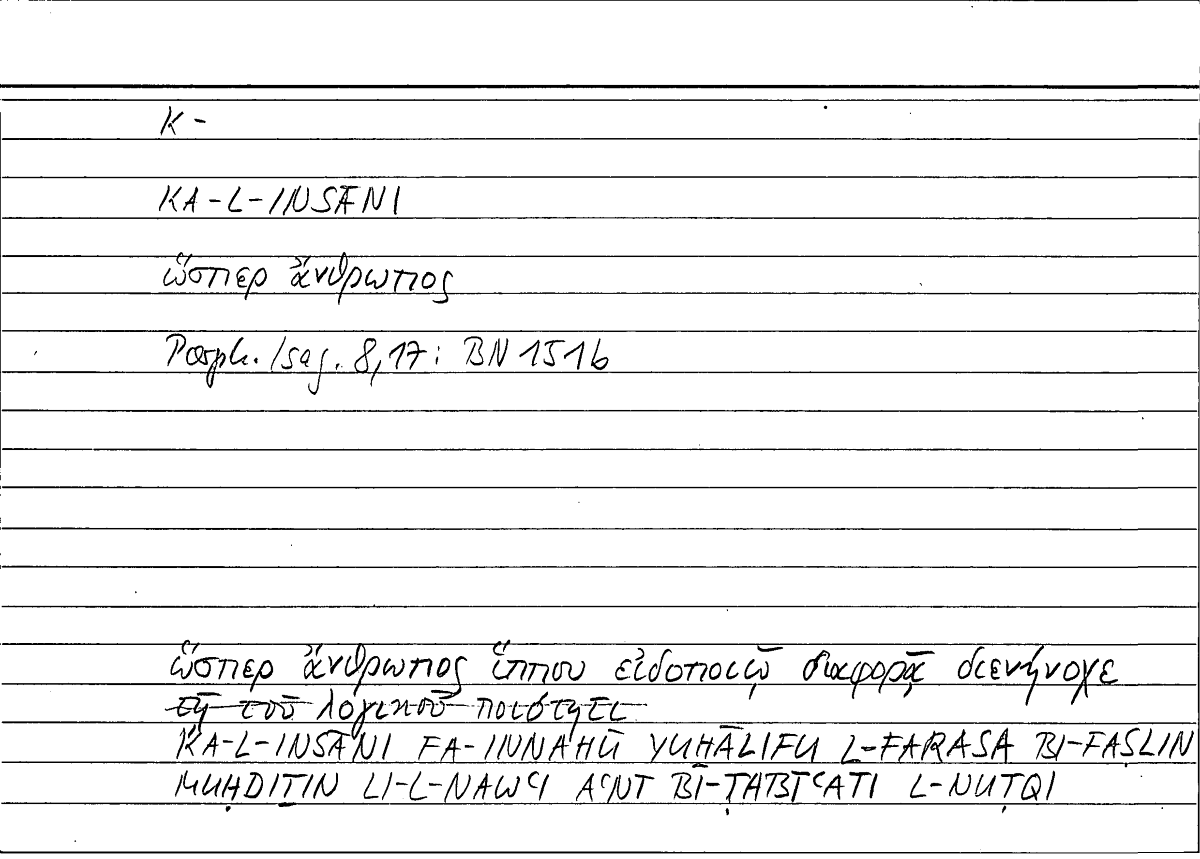 K -
KA-L-INSĀNI
ὥσπερ ἄνθρωπος
Porph. Isag. 8,17: BN 151b
ὥσπερ ἄνθρωπος ἵππου εἰδοποιῷ διαφορᾷ διενήνοχε
τῇ τοῦ λογικοῦ ποιότητι
KA-L-INSĀNI FA-INNAHŪ YUḪĀLIFU L-FARASA BI-FAṢLIN
MUḤDIṮIN LI-L-NAWʿI AʿNĪ BI-ṬABĪʿATI L-NUṬQI